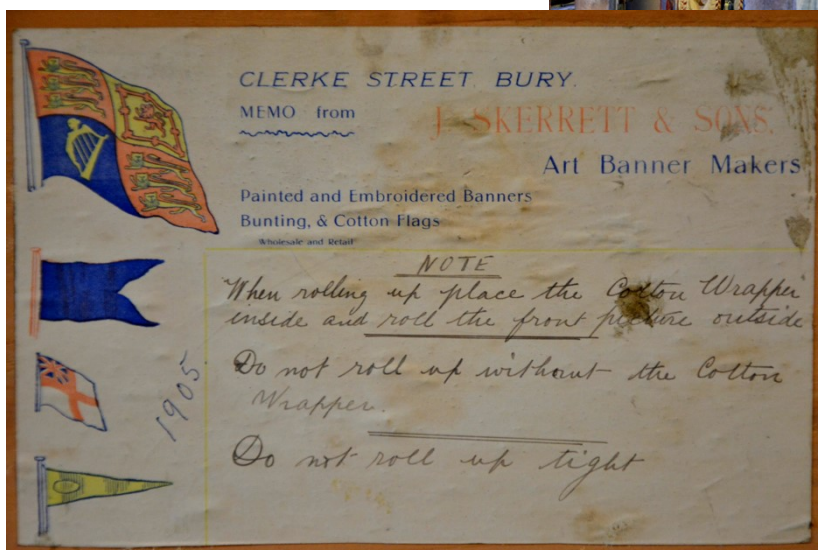 CLERKE STREET. BURY.
MEMO from
J. SKERRETT & SONS.
Art Banner Makers
Painted and Embroidered Banners
Bunting, & Cotton Flags
Wholesale and Retail
NOTE
When rolling up place the Cotton Wrapper
inside and roll the front picture outside
Do not roll up without the Cotton
Wrapper.
Do not roll up tight
1905